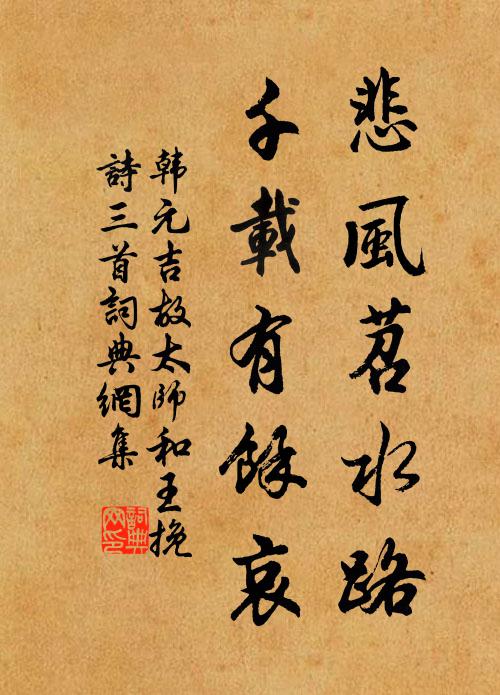 悲風苕水路
千載有餘哀
韩元吉故太師和王挽
詩三首詞典網集